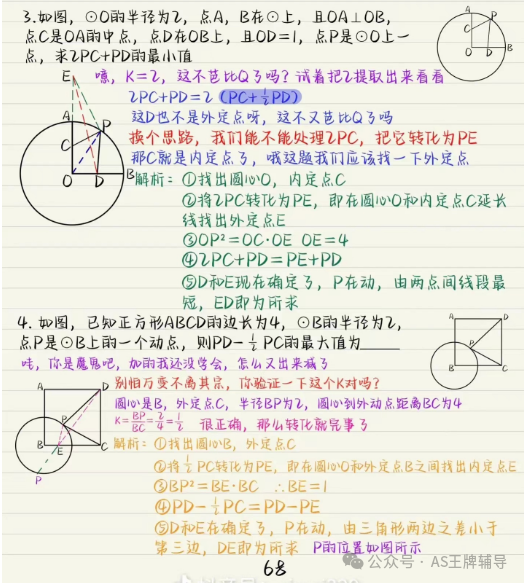 3.如图，⊙O的半径为2，点A，B在⊙上，且OA⊥OB，
点C是OA的中点，点D在OB上，且OD=1，点P是⊙O上一
点，求2PC+PD的最小值
嚎，K=2，这不芭比Q了吗？试着把2提取出来看看
2PC+PD=2（PC+½PD）
这D也不是外定点呀，这不又芭比Q了吗
换个思路，我们能不能处理2PC，把它转化为PE
那C就是内定点了，哦这题我们应该找一下外定点
解析：①找出圆心O，内定点C
②将2PC转化为PE，即在圆心O和内定点C延长
线找出外定点E
③OP²=OC·OE OE=4
④2PC+PD=PE+PD
⑤D和E现在确定了，P在动，由两点间线段最
短，ED即为所求
E
A
C
P
O
D
B
A
C
P
O
D
B
4.如图，已知正方形ABCD的边长为4，⊙B的半径为2，
点P是⊙B上的一个动点，则PD-½PC的最大值为____
哇，你是魔鬼吧，加的我还没学会，怎么又出来减了
别怕万变不离其宗，你验证一下这个K对吗？
圆心是B，外定点C，半径BP为2，圆心到外动点距离BC为4
K=BP/BC=2/4=½ 很正确，那么转化就完事了
解析：①找出圆心B，外定点C
②将½PC转化为PE，即在圆心O和外定点B之间找出内定点E
③BP²=BE·BC ∴BE=1
④PD-½PC=PD-PE
⑤D和E在确定了，P在动，由三角形两边之差小于
第三边，DE即为所求 P的位置如图所示
A
D
P
B
E
C
P
A
D
P
B
C
68
公众号·AS王牌辅导